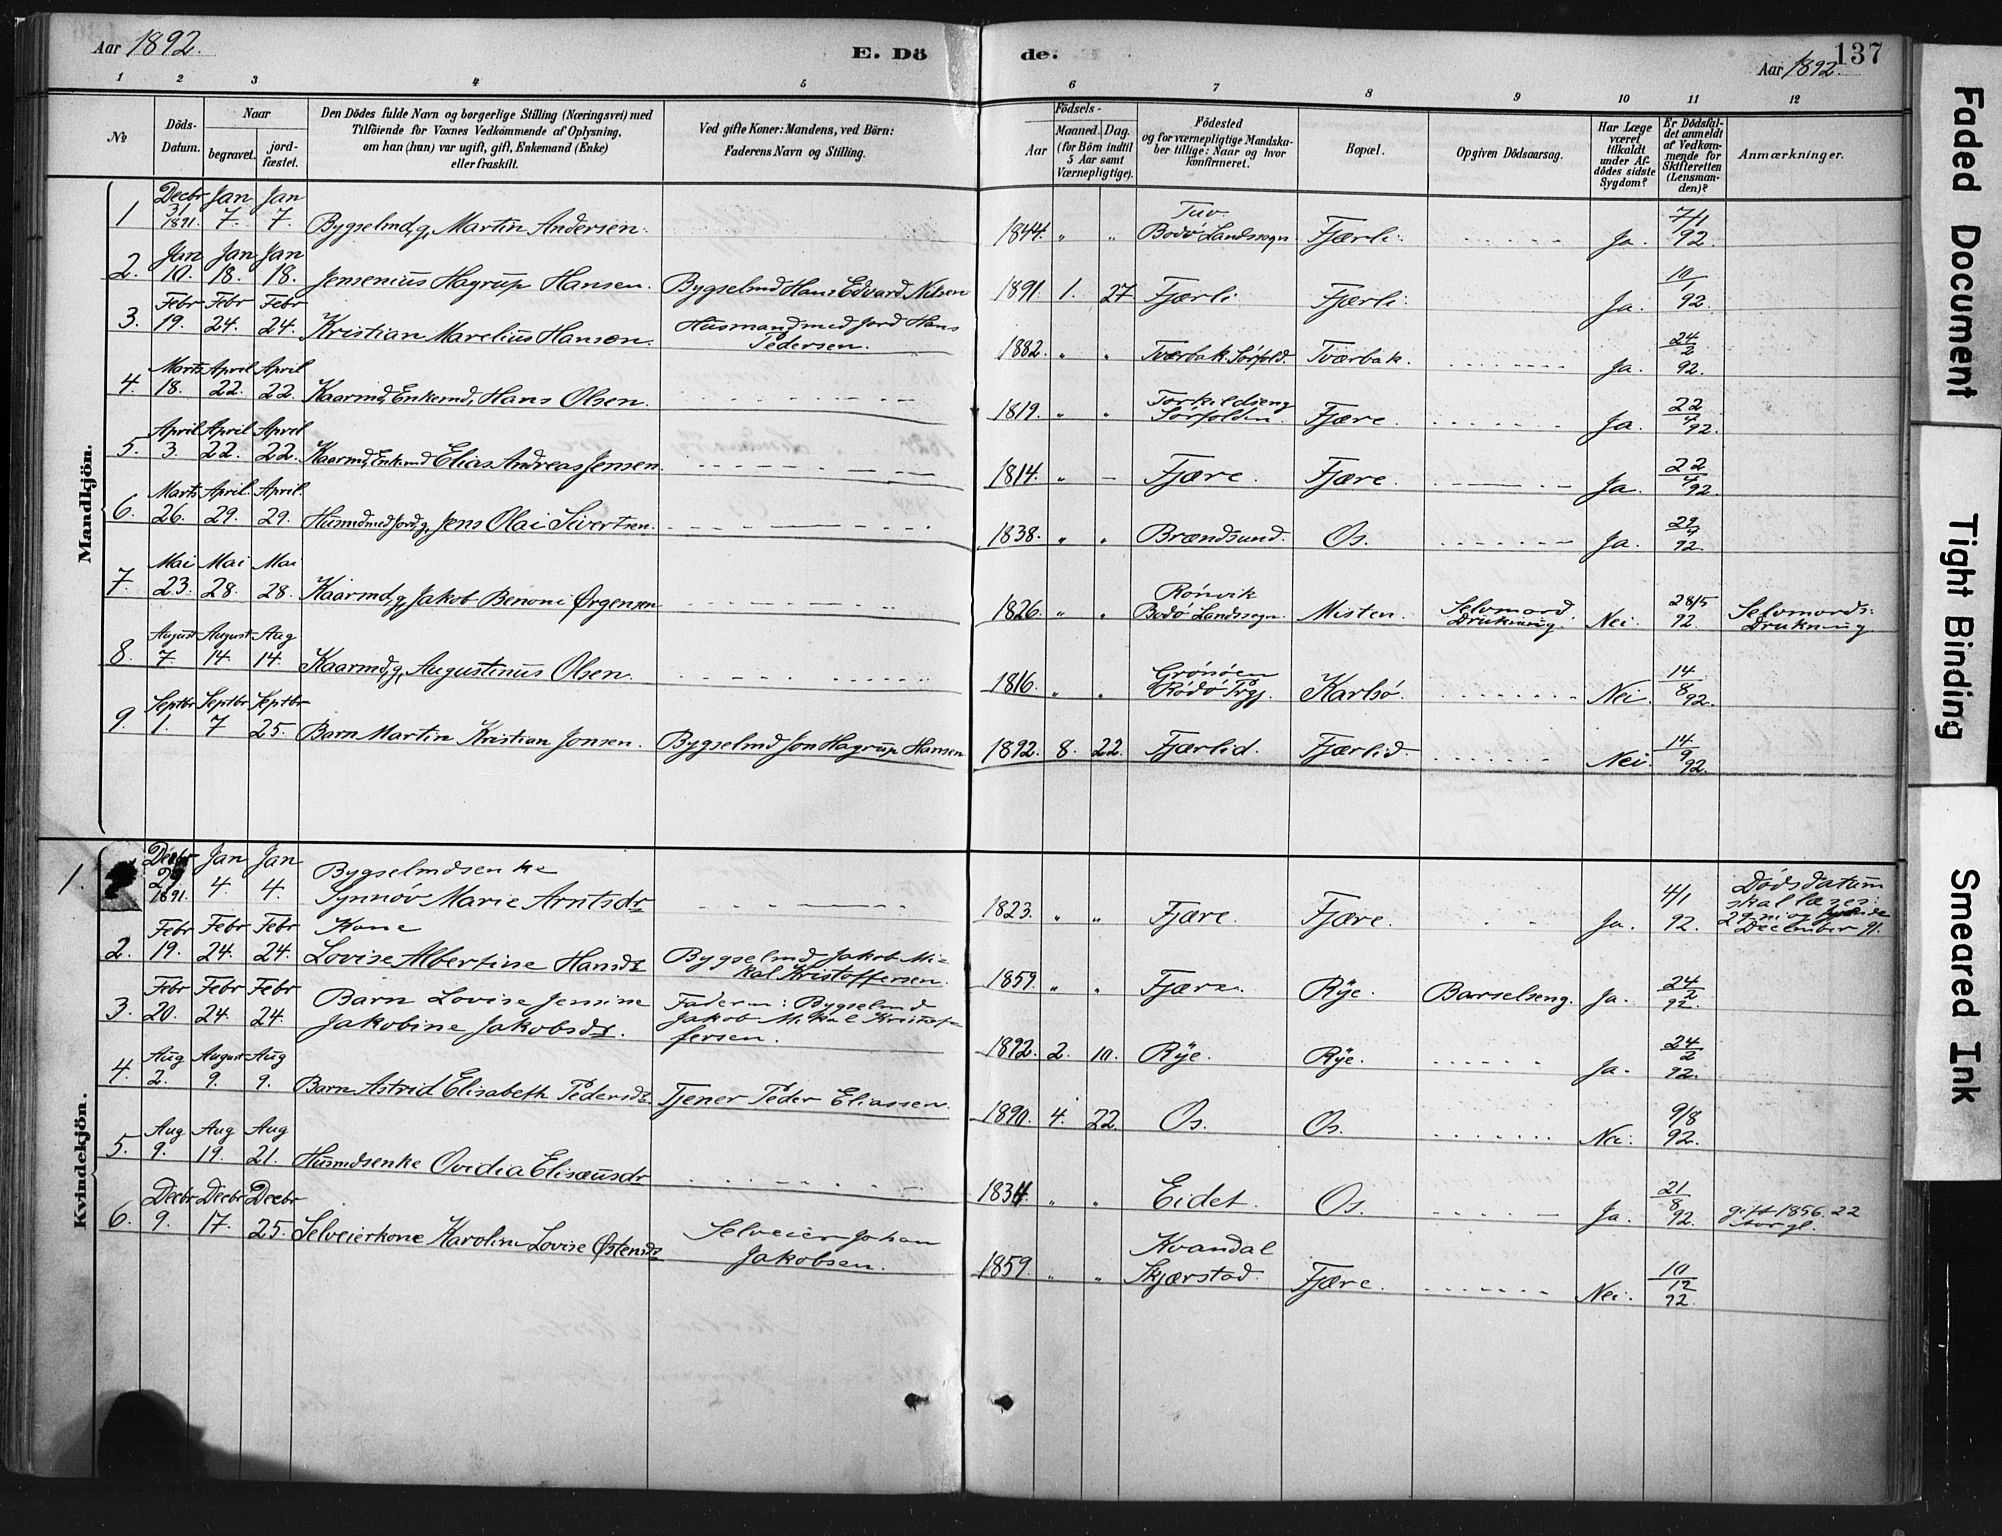 Aar 1892.
E. Dö
de.
137
Aar 1892.
1 2 3 4 5 6 7 8 9 10 11 12
No
Döds-Datum.
Naar
begravet.
jord-fæstet.
Den Dödes fulde Navn og borgerlige Stilling (Næringsvei) med
Tilföiende for Voxnes Vedkommende af Oplysning,
om han (hun) var ugift, gift, Enkemand (Enke)
eller fraskilt.
Ved gifte Koner: Mandens, ved Börn:
Faderens Navn og Stilling.
Födsels-
Aar
Maaned. Dag.
(for Börn indtil
5 Aar samt
Værnepligtige).
Födested
og for værnepligtige Mandska-
ber tillige: Naar og hvor
konfirmeret.
Bopæl.
Opgiven Dödsaarsag.
Har Læge
været
tilkaldt
under Af-
dödes sidste
Sygdom?
Er Dödsfal-
det anmeldt
af Vedkom-
mende for
Skifteretten
(Lensman-
den)?
Anmærkninger.
Mandkjön.
1 Decbr 31 1891. Jan 7. Jan 7. Bygselmd, g, Martin Andersen. 1844. " " Tuv. Bodø Landssogn Fjærli. Ja. 7/1 92.
2. Jan 10. Jan 18. Jan 18. Jensenius Hagrup Hansen. Bygselmd Hans Edvard Nilsen 1891. 1. 27 Fjærli Fjærli. Ja. 10/1 92.
3. Febr 19. Febr 24. Febr 24. Kristian Marelius Hansen. Husmand med Jord Hans Pedersen. 1882. " " Tværbak. Sørfold. Tværbak. Ja. 24/2 92.
4. Marts 18. April 22. April 22. Kaarmd, Enkemd, Hans Olsen. 1819. " " Torkildseng Sørfolden Fjære. Ja. 22/4 92.
5. April 3. April 22. April 22. Kaarmd, Enkemd Elias Andreas Jensen. 1814. " - Fjære. Fjære. Ja. 22/4 92.
6. Marts 26. April 29. April 29. Husmd med Jord, g, Jens Olai Sivertsen. 1838. " " Brændsund. Os. Ja. 29/4 92.
7. Mai 23. Mai 28. Mai 28. Kaarmd, g, Jakob Benoni Ørgensen 1826. " " Rønvik Bodø Landssogn. Misten. Selvmord Drukning. Nei. 28/5 92. Selvmords: Drukning
8. August 7. August 14. Aug 14. Kaarmd, g, Augustinus Olsen. 1816. " " Grønøen Rødø Prgj. Karlsø. Nei. 14/8 92.
9. Septbr 1. Septbr 7 Septbr 25. Barn Martin Kristian Jonsen. Bygselmd Jon Hagrup Hansen 1892. 8. 22. Fjærlid. Fjærlid. Nei. 14/9 92.
Kvindekjön.
1. Decbr 29 1891. Jan 4. Jan 4. Bygselmdsenke Synnøv Marie Arntsdr 1823. " " Fjære. Fjære. Ja. 4/1 92. Dødsdatum skal læses: 29 ni og tyvende December 91.
2. Febr 19. Febr 24. Febr 24. Kone Lovise Albertine Hansdr Bygselmd Jakob Mi- kal Kristoffersen. 1859. " " Fjære. Røe. Barselseng. Ja. 24/2 92.
3. Febr 20. Febr 24. Febr 24. Barn Lovise Jensine Jakobine Jakobsdr. Faderen: Bygselmd Jakob Mikal Kristof- fersen. 1892. 2. 10. Rÿe. Rÿe. Ja. 24/2 92.
4. Aug 2. August 9. Aug 9. Barn Astrid Elisabeth Pedersdr. Tjener Peder Eliassen. 1890. 4. 22. Os. Os. Nei. 9/8 92.
5. Aug 9. Aug 19. Aug 21. Husmdsenke Ovidia Elisæusdr 1834. " " Eidet. Os. Ja. 21/8 92. gift 1856. 22
6. Decbr 9. Decbr 17. Decbr 25. Selveierkone Karoline Lovise Østensdr Selveier Johan Jakobsen. 1859. " " Kvandal Skjærstad. Fjære. Nei. 10/12 92.
Faded Document
Tight Binding
Smeared Ink